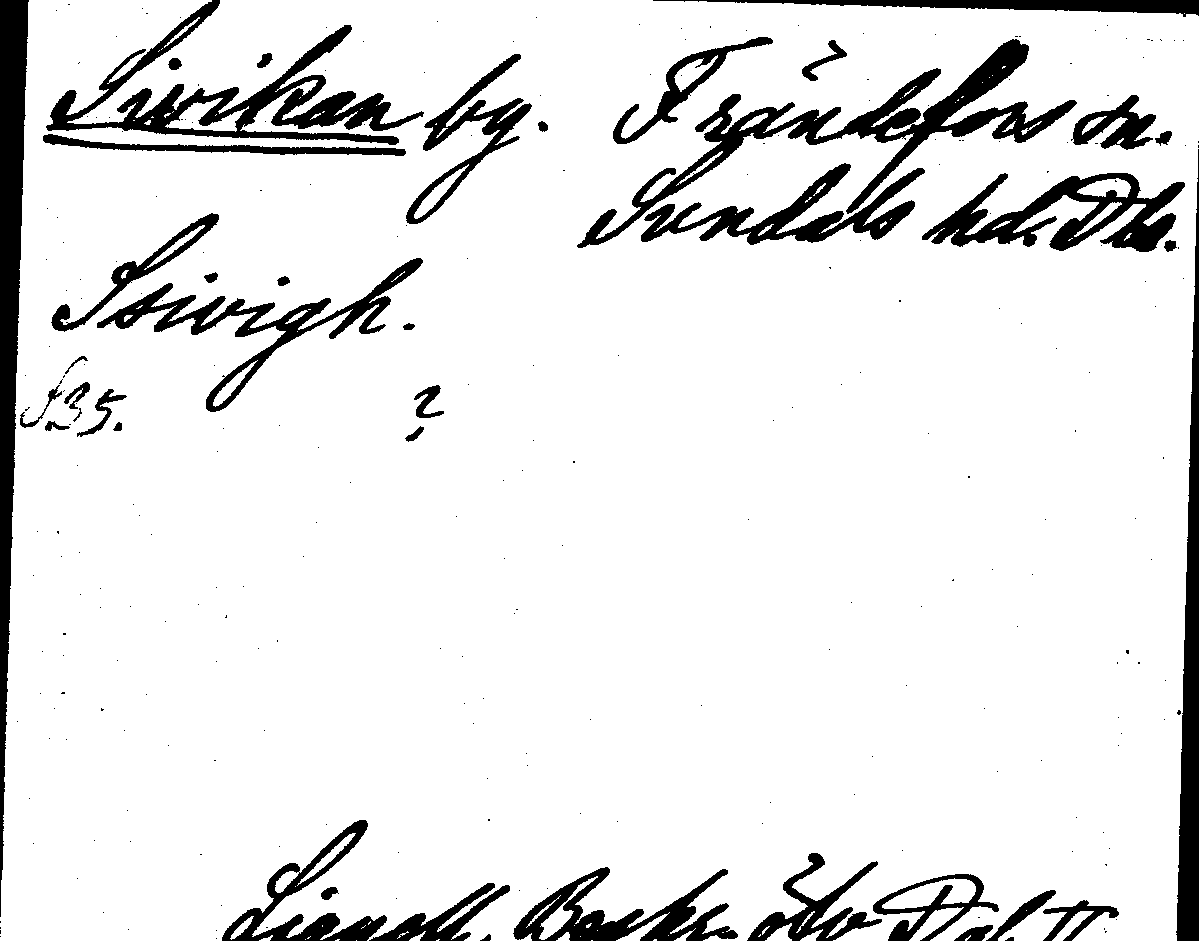 Sivikan by. Frändefors sn.
Sundals hd. Dls.
Ssivigh.
S. 35. ?
Lignell, Beskr. öfv. Dal. II